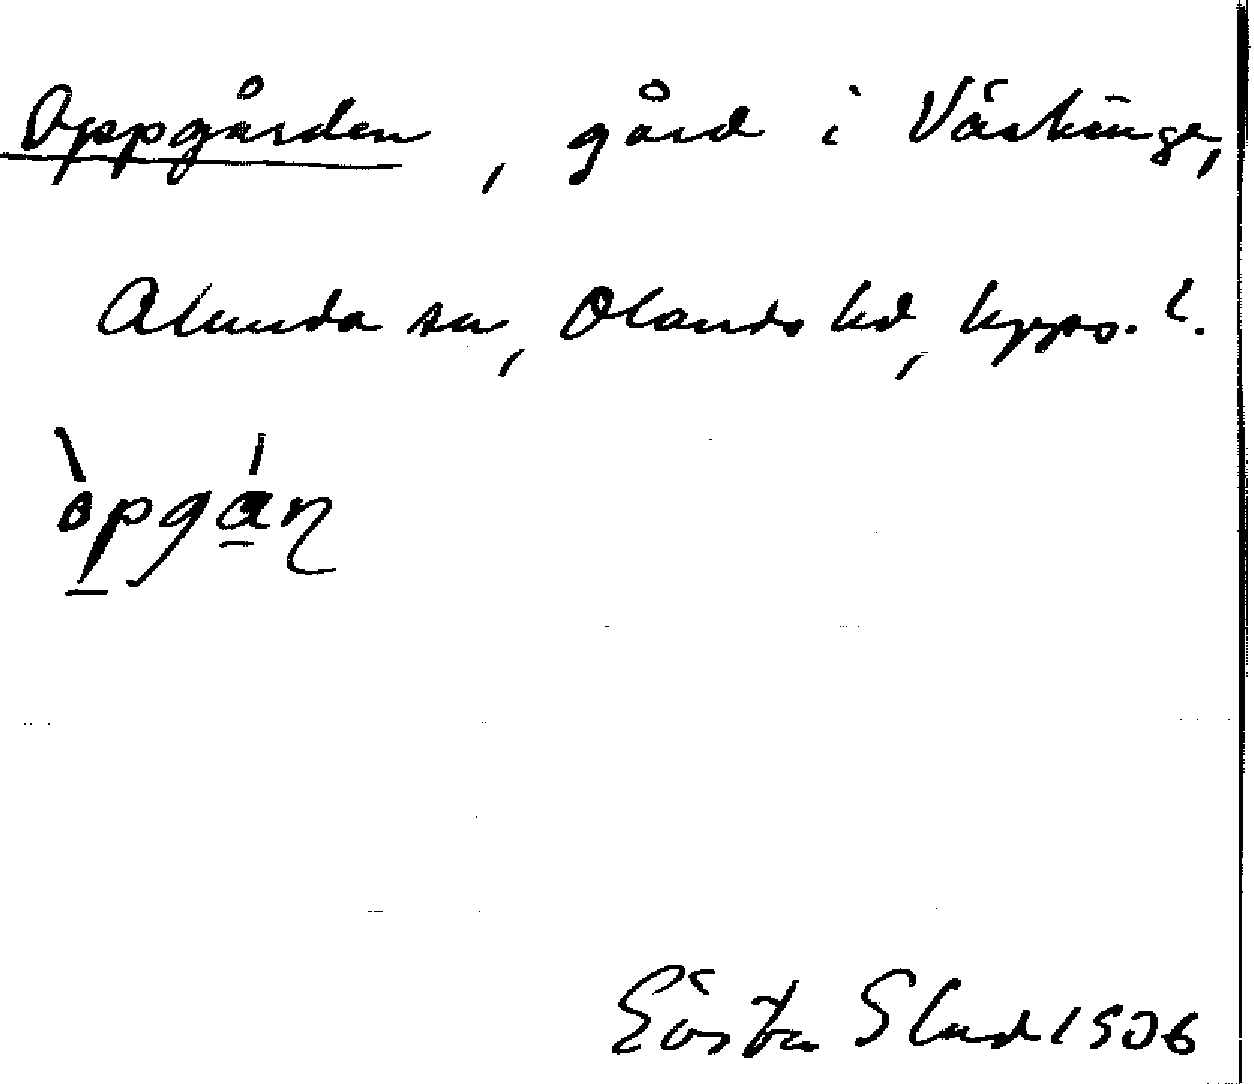 Oppgården, gård i Västinge,
Alunda sn, Olands hd, Upps. l.
òpgáɳ
Gösta Slud 1906